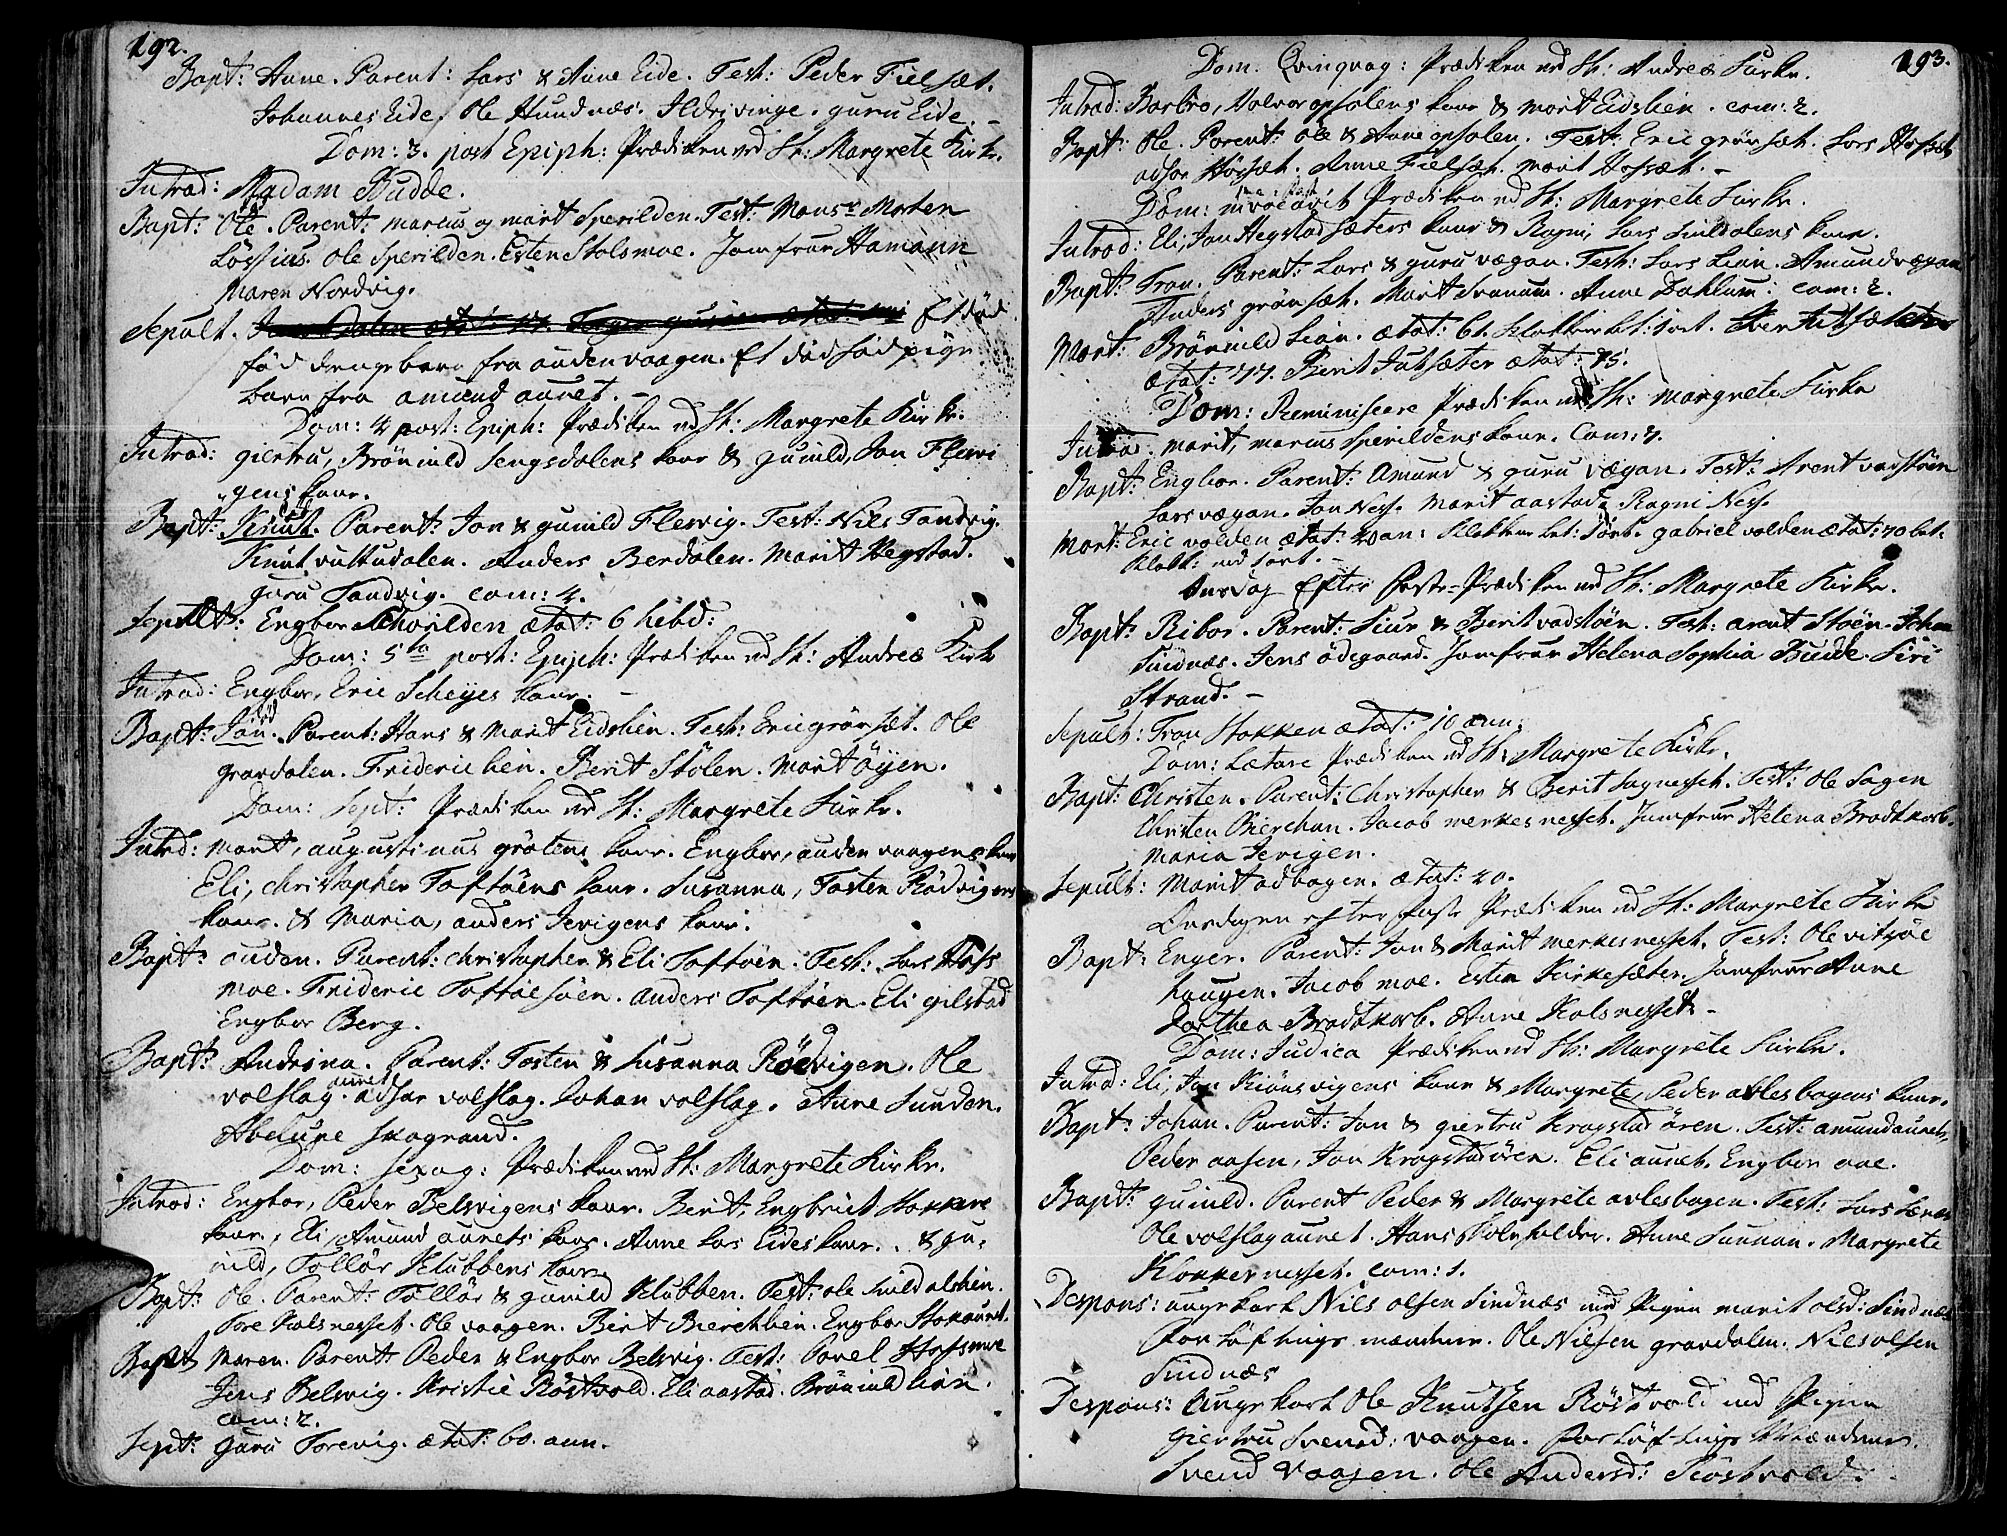 192.
Bapt: Anne. Parent: Lars & Anne Eide. Test: Peder Fielsæt.
Johannes Eide, Ole Hundnæs. Ildri vinge. guru Eide. -
Dom: 3. post Epiph: Prædiken ved St: Margrete Kirke.
Introd: Madam Budde.
Bapt: Ole. Parent: marcus og marit Sperilden. Test: Monsr Morten
Lossius. Ole Sperilden. Esten Stolsmoe. Jomfrue Hamann
Maren Nordvig.
Sepult. Et død
fød drengebarn fra auden vaagen. Et død fød pige
barn fra amund aunet. -
Dom: 4 post: Epiph: Prædiken ved St: Margrete Kirke.
Introd: giertru, Brönnild Sengsdalens kone & gunild, Jon Flesvi
gens kone.
Bapt: Knut. Parent: Jon & gunild Flesvig. Test: Nils Tandvig.
Knut vuttudalen. Anders Berdalen. Marit Hegstad.
guru Tandvig. com: 4.
Sepult: Engbor ætat: 6 hebd:
Dom: 5ta post: Epiph: Prædiken ved St: Andreæ Kirke
Introd: Engbor, Eric Scheyes kone. -
Bapt: Jon. Parent: Hans & Marit Eidslien. Test: Eric grönsæt. Ole
grandalen. Frideric lien. Berit Stölen. Marit öyen.
Dom: Sept: Prædiken ved St: Margrete Kirke.
Introd: Marit, augustinus grötens kone. Engbor, auden vaagens kone
Eli, christopher Toftöens kone. Susanna, Tosten Rödvigens
kone. & Maria, anders Jevigens kone.
Bapt: auden. Parent: christopher & Eli Toftöen. Test: Lars Hofs
moe. Frideric Toftöesöen. anders Toftöen. Eli gilstad
Engbor Berg.
Bapt: Andrina. Parent: Tosten & Susanna Rödvigen. Ole
volslag. aunet adser volslag. Johan volslag. Anne Sunden.
Abelune skagrand.
Dom: sexag: Prædiken ved St: Margrete Kirke.
Introd: Engbor, Peder Belsvigens kone. Berit, Engbrict Stokkens
kone, Eli Amund aunets kone. Anne Lars Eides kone. & gu-
nild, Tollör Klubbens kone.
Bapt: Ole. Parent: Tollör & gunild Klubben. Test: ole
Tore Kalsnesset. Ole vaagen. Berit Bierchlien. Engbor Stokaunet.
Bapt: Maren. Parent: Peder & Engbor Belsvig. Test: Povel Hofsmoe
Jens Belsvig. Kristie Röstvold. Eli aastad. Brönnild lien.
com: 2.
Sept: guru Torevig. ætat: 60. ann.
193.
Dom: Qvinquag: Prædiken ved St: Andreæ Kirke.
Introd: Barbro, Halvor opsalens kone & marit Eidslien. com: 2.
Bapt: Ole. Parent: Ole & Anne opsalen. Test: Eric grönsæt. Lars Hofsæt
adser Hofsæt. Anne Fielsæt. marit Hofsæt. -
Dom: invocavit Prædiken ved St: Margrete Kirke.
Introd: Eli, Jon Hegstadsæters kone & Ragni, Lars kone.
Bapt: Tron. Parent: Lars & guru vægan. Test: Lars Lian. Amund vægan
Anders grönsæt. Marit Svanem. Anne Dahlum: com: 2.
Mort: Brönnild Lian. ætat: 61. Klokken bet: 1 ort. Iver Jutsæter
ætat: 77. Berit Jutsæter ætat: 75.
Dom: Reminiscere Prædiken ved St: Margrete Kirke
Introd: marit, marcus Sperildens kone. Com: 7.
Bapt: Engbor. Parent: Amund & guru vægan. Test: Arent vadstöen
Lars vægan. Jon Ness. Marit aastad. Ragni Ness.
Mort: Eric volden ætat: 20 an: Klokken bet: 1 ort. gabriel volden ætat: 70 bet:
Klokk: med 1 ort. -
Onsdag Efter Faste-Prædiken ved St: Margrete Kirke.
Bapt: Ribor. Parent: Siur & Berit vadstöen. Test: arent Stöen. Johan
Sindnæs. Jens ödegaard. Jomfrue Helena Sophia Budde. Siri
Strand. -
Sepult: Tron Stokken ætat: 10 ann:
Dom: Lætare Prædiken ved St: Margrete Kirke.
Bapt: Christen. Parent: Christopher & Berit Sagnesset. Test: Ole Sagen
Christen Bierchan. Jacob merkesnesset. Jomfrue Helena Brodtkorb.
Maria Jevigen.
Sepult: Marit adbogen. ætat: 20.
Onsdagen efter faste Prædiken ved St: Margrete Kirke
Bapt: Enger. Parent: Jon & Marit merkesnesset. Test: Ole vitsöe
haugen. Jacob moe. Esten Kirkesæter. Jomfrue Anne
Dorthea Brodtkorb. Anne Kalsnesset. -
Dom: Judica Prædiken ved St: Margrete Kirke.
Introd: Eli, Jon Kiönsvigens kone & Margrete, Peder avlesbogens kone.
Bapt: Johan. Parent: Jon & giertru Krogstadören. Test: amund aunet,
Peder aasen, Jon Krogstadören. Eli aunet. Engbor aae.
Bapt: gunild. Parent Peder & Margrete avlesbogen. Test:
Ole volslagaunet. Hans Anne Sunnan. Margrete
Klokkernesset. com: 1.
Despons: ungekarl Nils olsen Sindnæs med Pigen marit olsd: Sindnæs
Forlöftnings mændene. Ole Nilsen grandalen. Nils olsen
Sindnæs
Despons: Ungekarl Ole Knutsen Röstvold med Pigen
giertru Svensd: vaagen. forlöftnings Mændene.
Svend Vaagen. Ole Andersd: Röstvold.